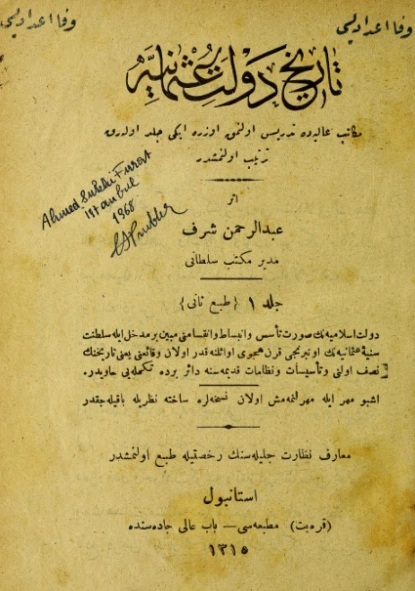 وفا اعدادیسی
وفا اعدادیسی
تاریخ دولت عثمانیه
مکاتب عالیه‌ده تدریس اولنمق اوزره ایکی جلد اوله‌رق
ترتیب اولنمشدر
اثر
عبدالرحمن شرف
مدیر مکتب سلطانی
جلد ۱ {طبع ثانی}
Ahmed Subhi Furat
istanbul
1968
دولت اسلامیه‌نك صورت تأسس وانبساط وانقسامنی مبین بر مدخل ایله سلطنت
سنیهٔ عثمانیه‌نك اونبرنجی قرن هجری اوائلنه قدر اولان وقائعنی یعنی تاریخنك
نصف اولنی وتأسیسات ونظامات قدیمه‌سنه دائر برده تکمله‌یی حاویدر.
اشبو مهر ایله مهرلنمه‌مش اولان نسخه‌لره ساخته نظریله باقیله‌جقدر
معارف نظارت جلیله‌سنك رخصتیله طبع اولنمشدر
استانبول
(قره‌بت) مطبعه‌سی — باب عالی جاده‌سنده
۱۳۱۵